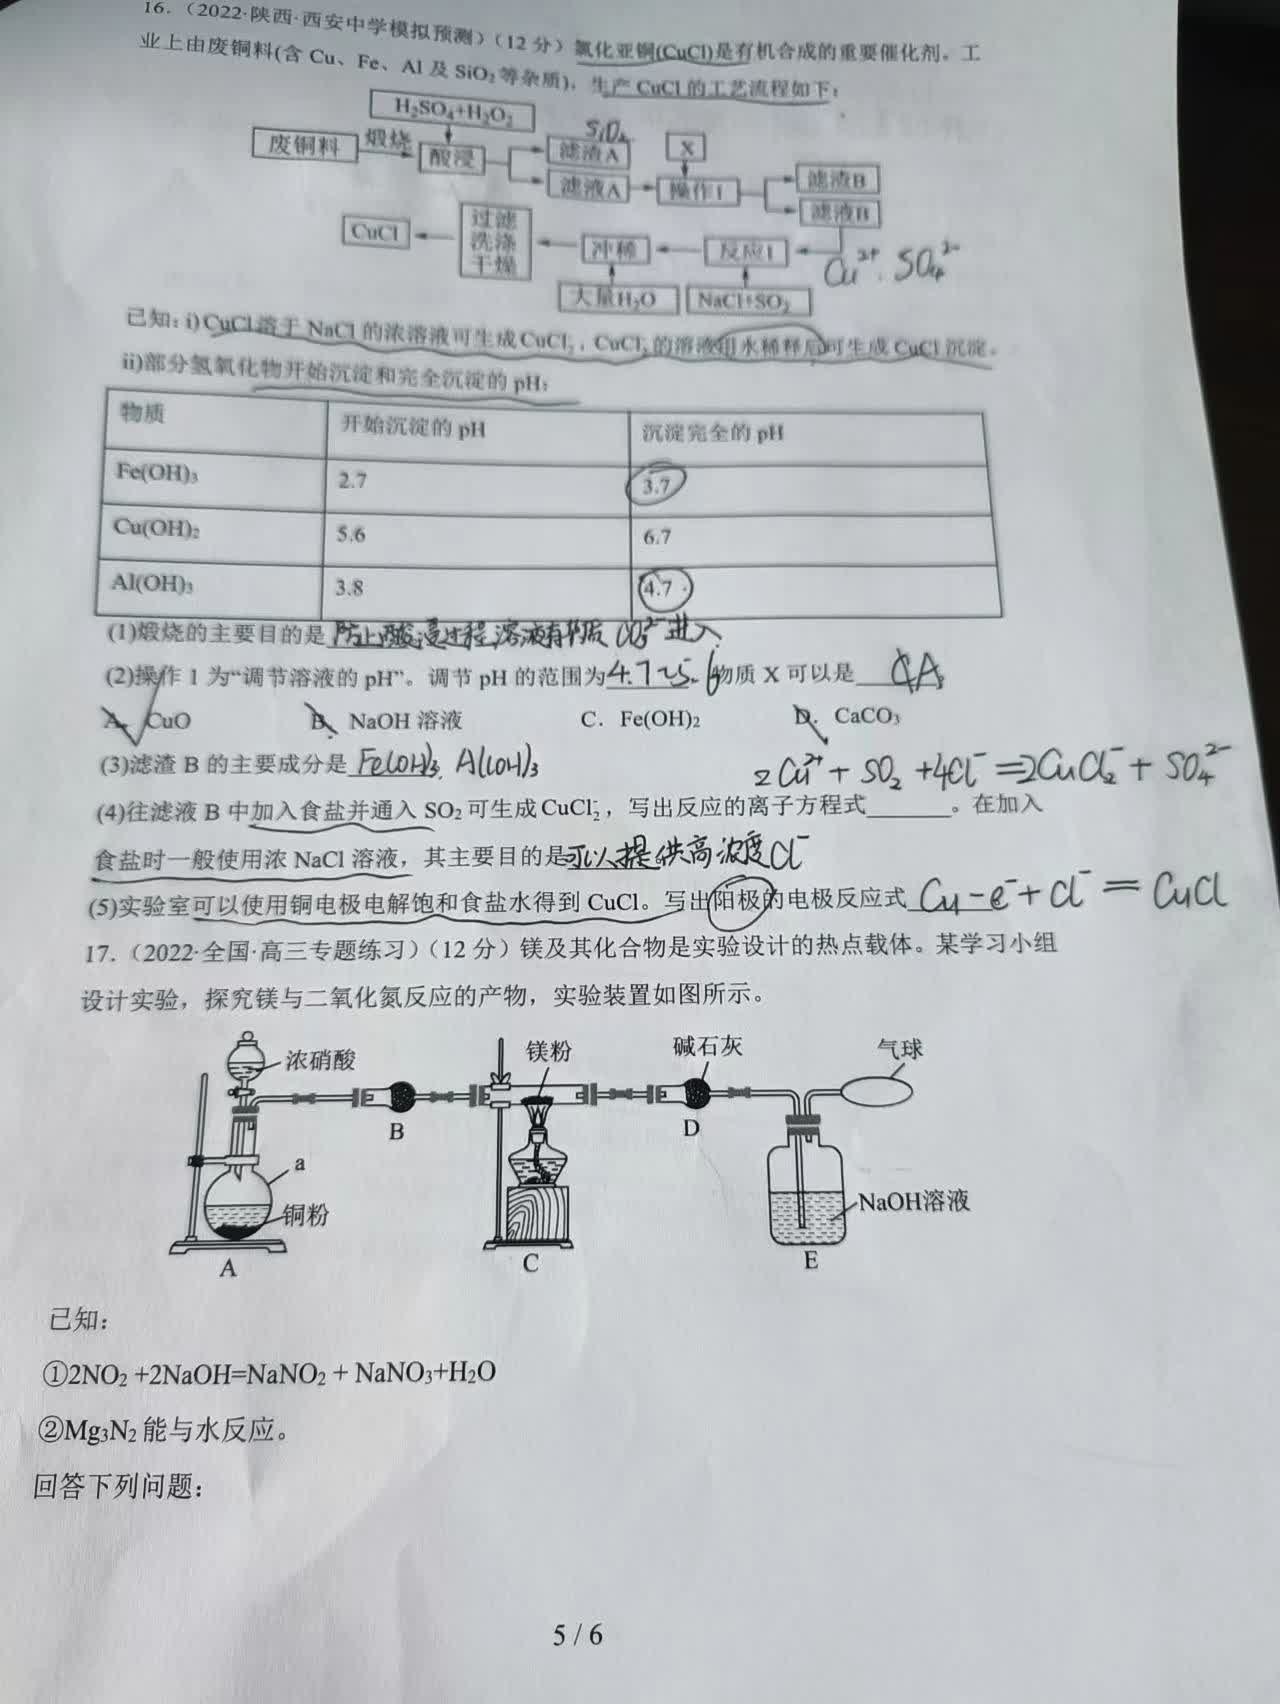 16.（2022·陕西·西安中学模拟预测）（12分）氯化亚铜(CuCl)是有机合成的重要催化剂。工
业上由废铜料(含 Cu、Fe、Al 及 SiO₂等杂质)，生产 CuCl 的工艺流程如下：
H₂SO₄+H₂O₂
SiO₂
废铜料 煅烧 酸浸 滤渣A X
滤液A 操作1 滤渣B
滤液B
CuCl 过滤 洗涤 干燥 冲稀 反应1
Cu²⁺、SO₄²⁻
大量H₂O NaCl+SO₂
已知：i)CuCl 溶于 NaCl 的浓溶液可生成 CuCl₂⁻，CuCl₂⁻的溶液用水稀释后可生成 CuCl 沉淀。
ii)部分氢氧化物开始沉淀和完全沉淀的 pH：
物质 开始沉淀的 pH 沉淀完全的 pH
Fe(OH)₃ 2.7 3.7
Cu(OH)₂ 5.6 6.7
Al(OH)₃ 3.8 4.7
(1)煅烧的主要目的是 防止酸浸过程溶液有 CO₃²⁻进入
(2)操作 1 为“调节溶液的 pH”。调节 pH 的范围为4.7~5.6 物质 X 可以是 A
A. CuO B. NaOH 溶液 C. Fe(OH)₂ D. CaCO₃
(3)滤渣 B 的主要成分是 Fe(OH)₃、Al(OH)₃
2Cu²⁺+SO₂+4Cl⁻=2CuCl₂⁻+SO₄²⁻
(4)往滤液 B 中加入食盐并通入 SO₂ 可生成 CuCl₂⁻，写出反应的离子方程式______。在加入
食盐时一般使用浓 NaCl 溶液，其主要目的是可以提供高浓度Cl⁻
(5)实验室可以使用铜电极电解饱和食盐水得到 CuCl。写出阳极的电极反应式 Cu-e⁻+Cl⁻=CuCl
17.（2022·全国·高三专题练习）（12 分）镁及其化合物是实验设计的热点载体。某学习小组
设计实验，探究镁与二氧化氮反应的产物，实验装置如图所示。
浓硝酸 镁粉 碱石灰 气球
B D
a
铜粉 NaOH溶液
A C E
已知：
①2NO₂ +2NaOH=NaNO₂ + NaNO₃+H₂O
②Mg₃N₂ 能与水反应。
回答下列问题：
5 / 6